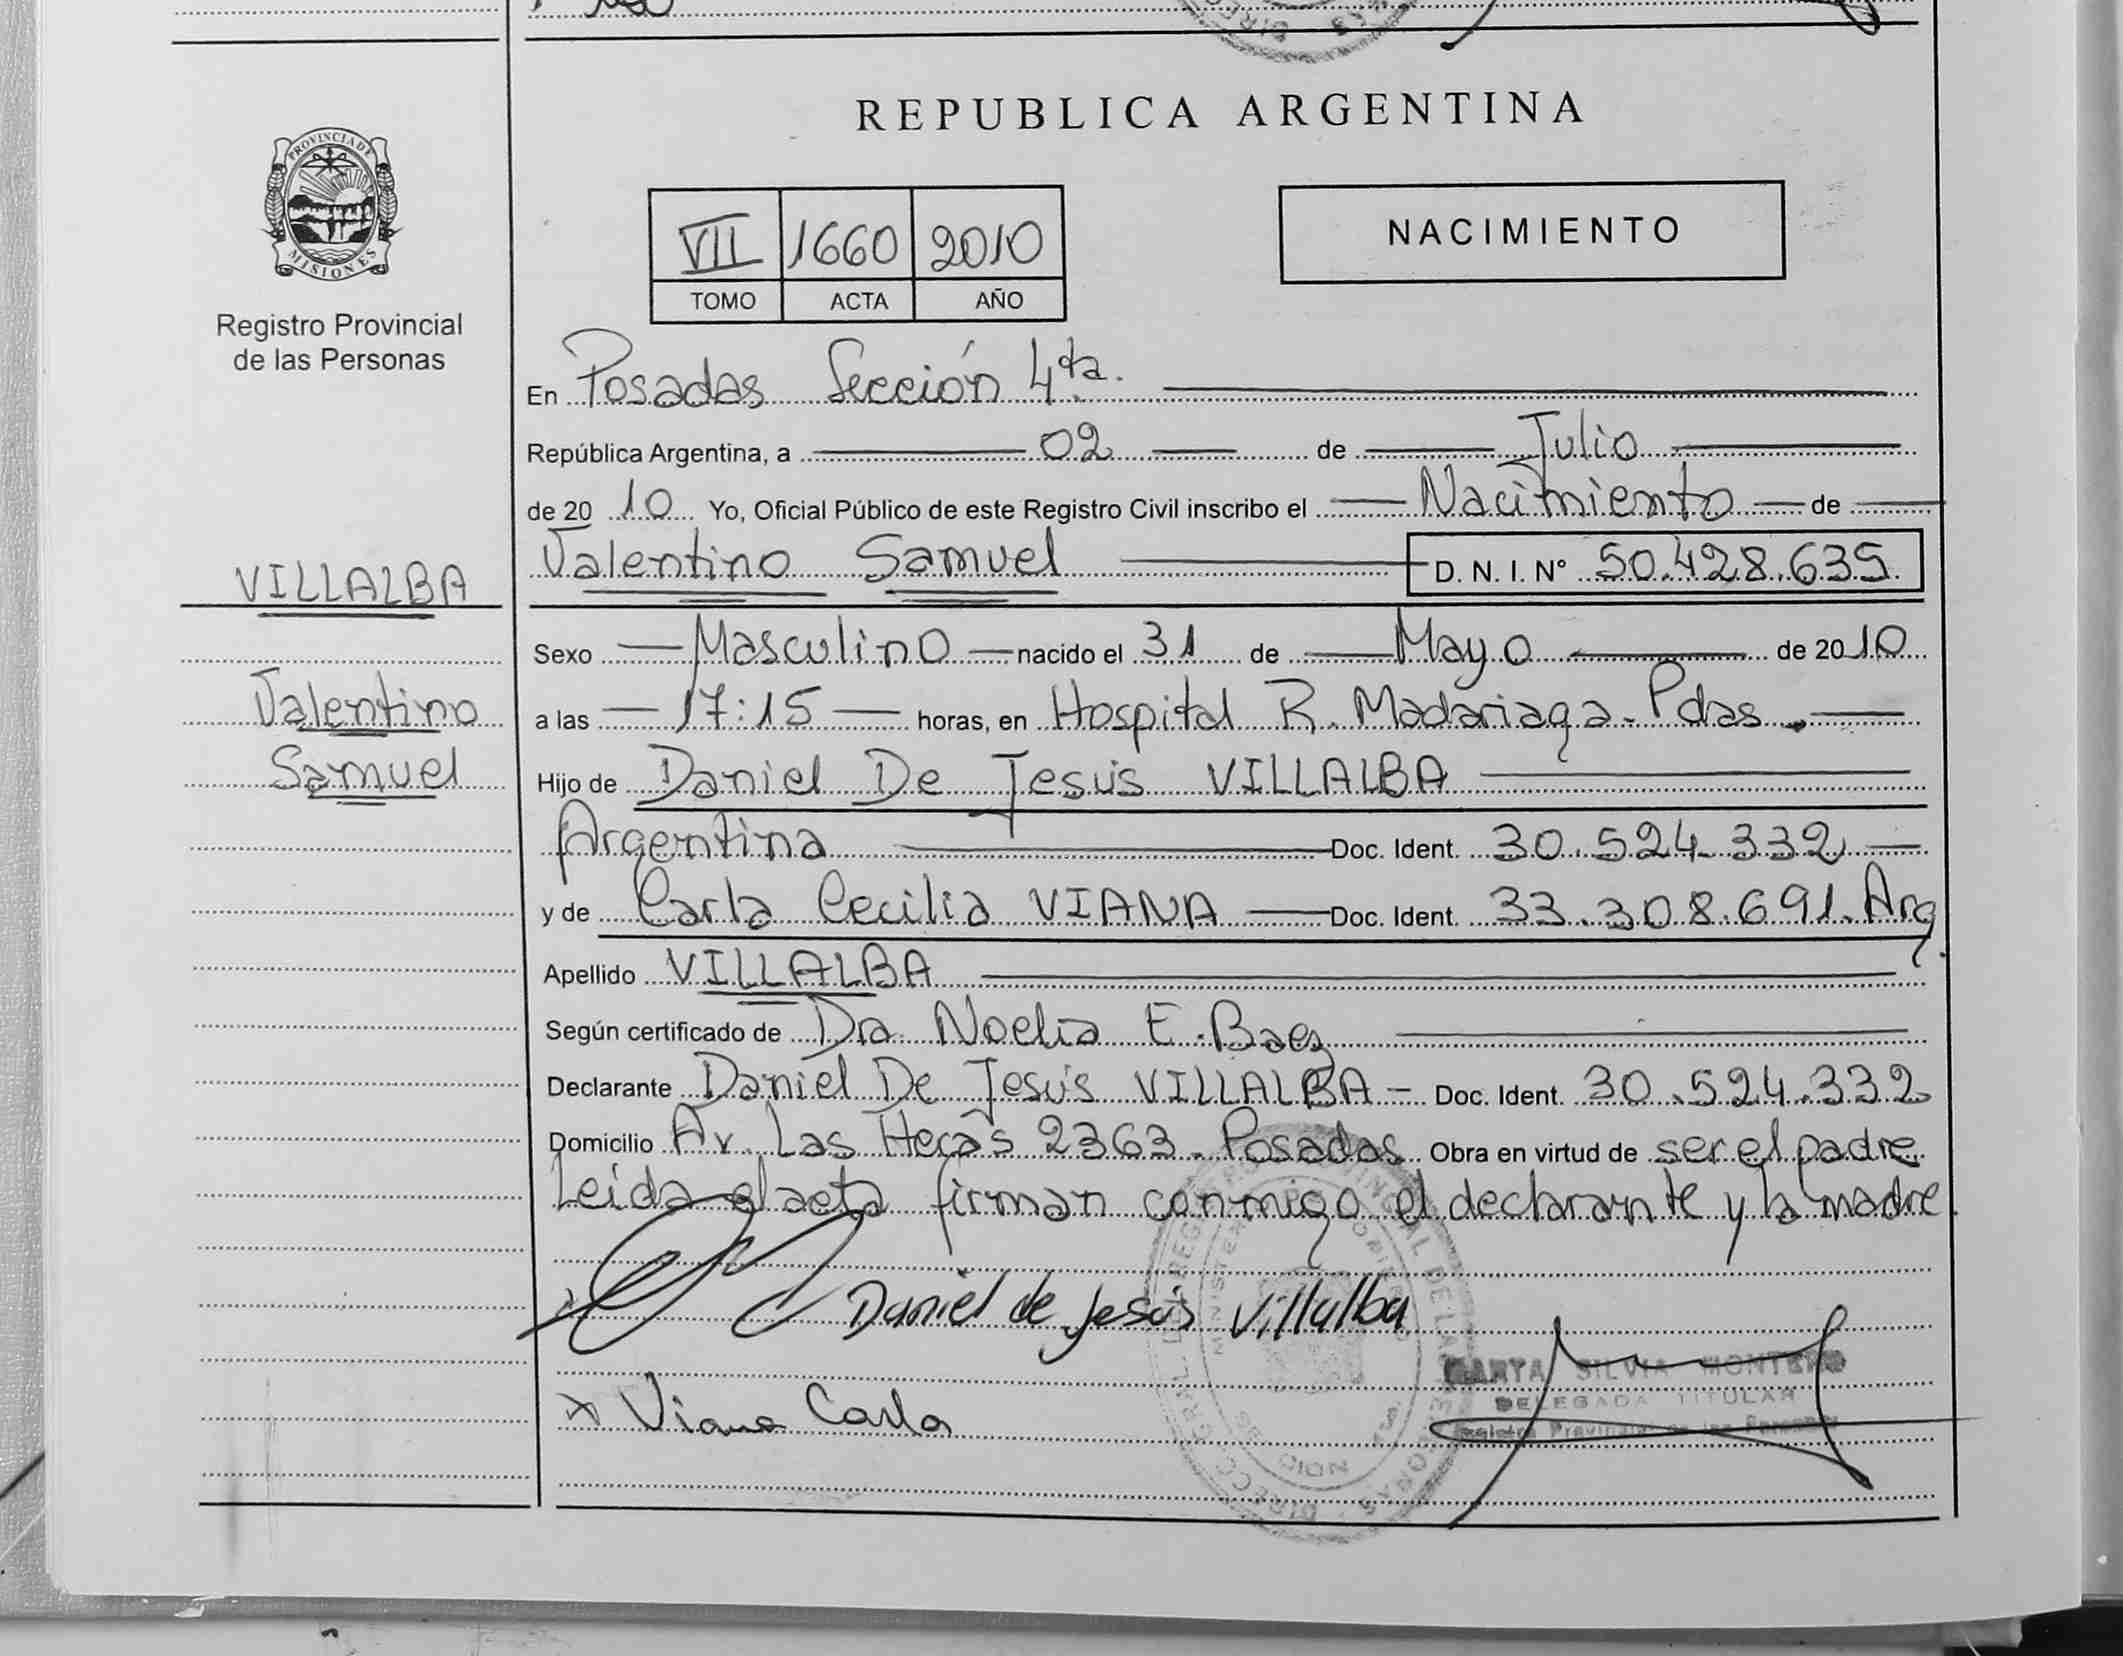 REPUBLICA ARGENTINA
PROVINCIA DE MISIONES
Registro Provincial
de las Personas
VII 1660 2010
TOMO ACTA AÑO
NACIMIENTO
En Posadas Sección 4ta.
República Argentina, a 02 de Julio
de 2010 Yo, Oficial Público de este Registro Civil inscribo el Nacimiento de
Valentino Samuel D. N. I. N° 50.428.635
VILLALBA
Valentino
Samuel
Sexo Masculino nacido el 31 de Mayo de 2010
a las 17:15 horas, en Hospital R. Madariaga - Pdas.
Hijo de Daniel De Jesús VILLALBA
Argentina Doc. Ident. 30.524.332
y de Carla Cecilia VIANA Doc. Ident. 33.308.691. Arg.
Apellido VILLALBA
Según certificado de Dra. Noelia E. Baez
Declarante Daniel De Jesús VILLALBA - Doc. Ident. 30.524.332
Domicilio Av. Las Heras 2363 - Posadas Obra en virtud de ser el padre
Leida el acta firman conmigo el declarante y la madre.
Daniel de Jesús Villalba
x Viana Carla
MARTA SILVIA MONTERO
DELEGADA TITULAR
Registro Provincial de las Personas